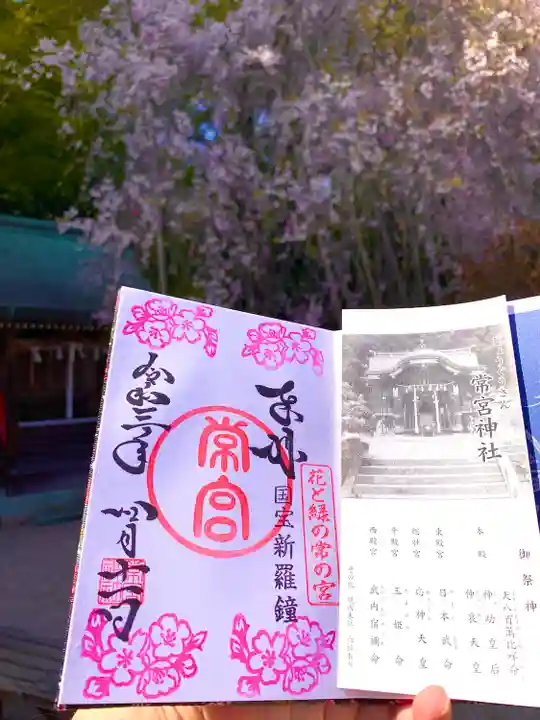 花と緑の常の宮
奉拝
国宝新羅鐘
常宮
令和三年
四月十一日
常宮神社
御祭神
天八百萬比咩命
本殿
神功皇后
仲哀天皇
東殿宮
日本武命
総社宮
応神天皇
平殿宮
玉姫命
西殿宮
武内宿禰命